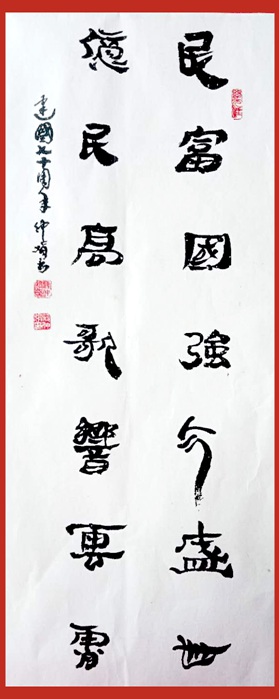 民富國強今盛世
億民高歌響雲霄
建國七十周年